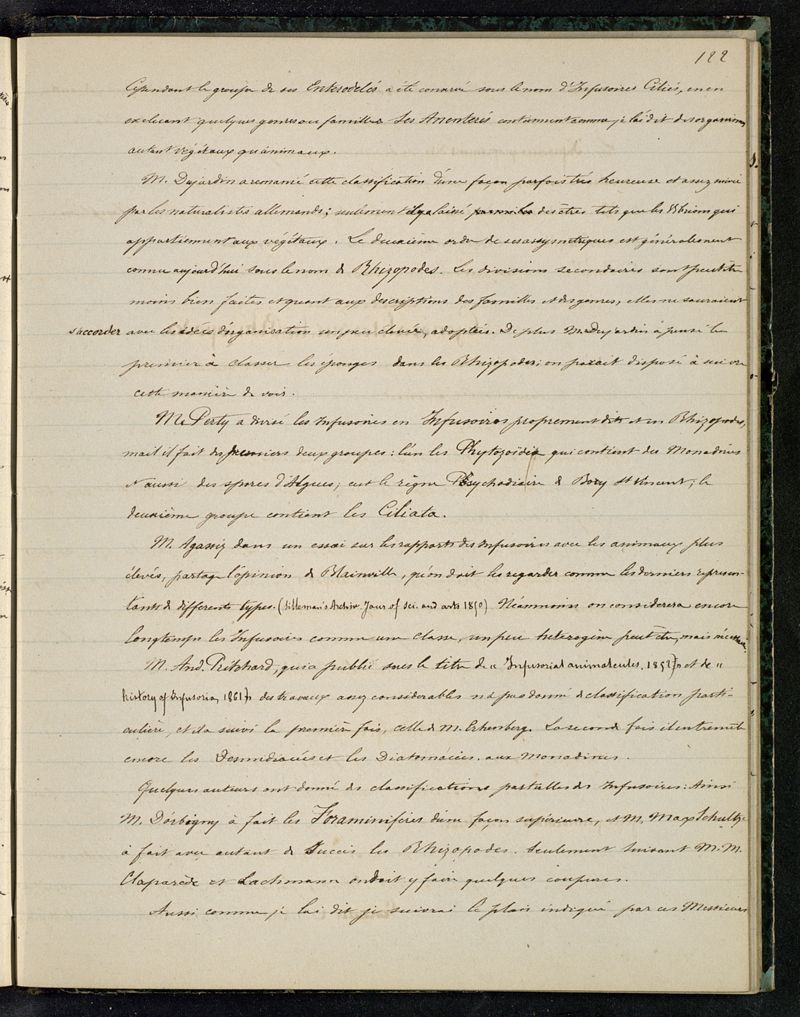 122
Cependant le groupe de ses Enterodelés a été conservé sous le nom d'Infusoires Ciliés, en en
excluant quelques genres ou familles. Les Anenterés contiennent comme je l'ai dit des organismes
autant végétaux qu'animaux.
M. Dujardin a remanié cette classification d'une façon parfois très heureuse et assez suivie
par les naturalistes allemands; seulement il y a laissé parmi les des êtres tels que les Vibrions qui
appartiennent aux végétaux. Le deuxième ordre de ses assymetriques est généralement
connu aujourd'hui sous le nom de Rhizopodes. Les divisions secondaires sont peut être
moins bien faites et quant aux descriptions des familles et des genres, elles ne sauraient
s'accorder avec les idées d'organisation un peu élevée, adoptées. De plus M. Dujardin a pensé le
premier à classer les éponges dans les Rhizopodes; on parait disposé à suivre
cette manière de voir.
M. Perty a divisé les Infusoires en Infusoires proprement dits et en Rhizopodes,
mais il fait des premiers deux groupes: l'un les Phytozoïdes qui contient des Monadines
et aussi des spores d'Algues, c'est le règne Psychodiaire de Bory St Vincent; le
deuxième groupe contient les Ciliata.
M. Agassiz dans un essai sur les rapports des Infusoires avec les animaux plus
élevés, partage l'opinion de Blainville, qu'on doit les regarder comme les derniers représen-
tants de différents types. (Silleman's Archiv. Jour of sci. and arts 1850) Néanmoins on considerera encore
longtemps les Infusoires comme une classe, un peu hétérogène peut être, mais
M. And. Pritchard, qui a publié sous le titre de « Infusorial animalcules. 1852 » et de «
history of Infusoria, 1861 » des travaux assez considerables n'a pas donné de classification parti-
culière, et il a suivi la première fois, celle de M. Erhenberg. La seconde fois il
encore les Desmidiacées et les Diatomacées. aux Monadines.
Quelques auteurs ont donné des classifications partielles des Infusoires. Ainsi
M. Dorbigny à fait les Foraminifères d'une façon supérieure, et M. Max Schultze
à fait avec autant de succès les Rhizopodes. Seulement suivant M.M.
Claparède et Lachmann on doit y faire quelques coupures.
Aussi comme je l'ai dit je suivrai le plan indiqué par ces Messieurs